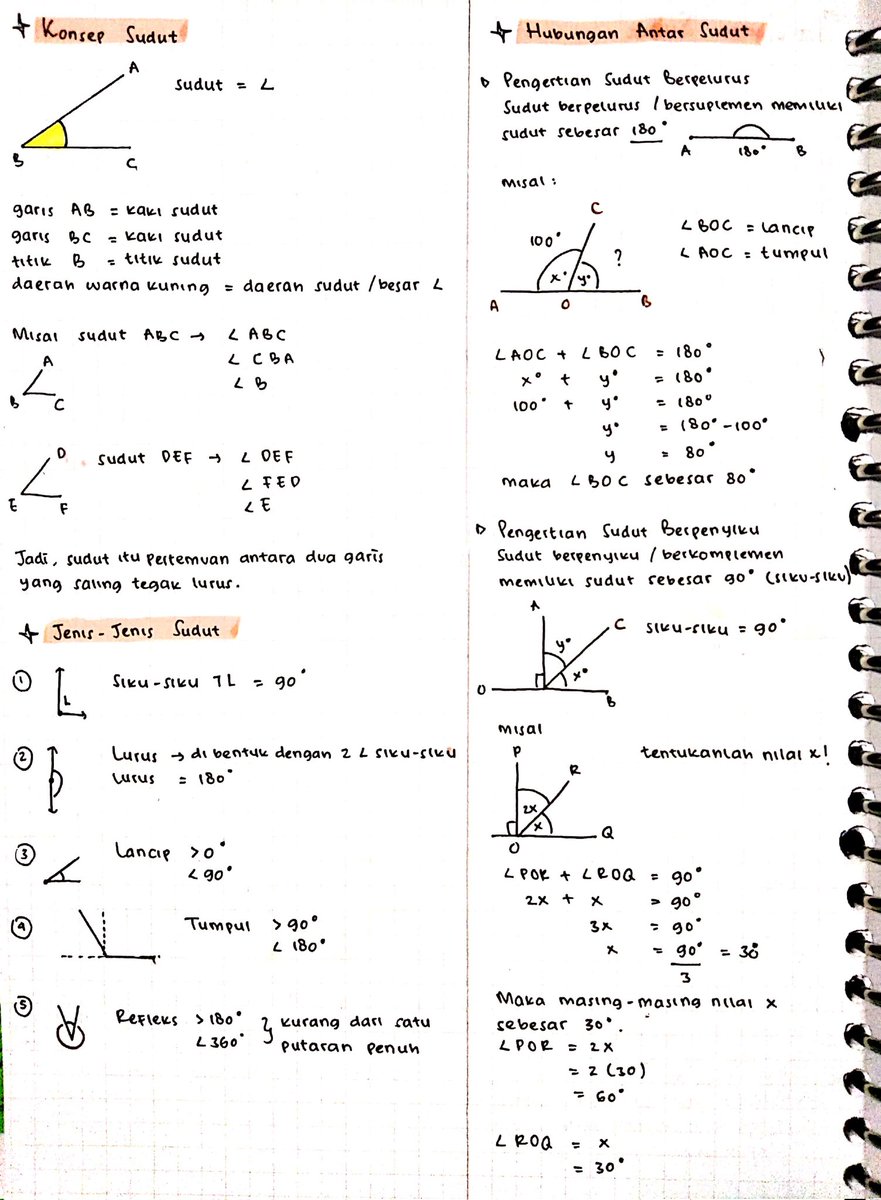 Konsep Sudut
A
Sudut = ∠
B
C
garis AB = kaki sudut
garis BC = kaki sudut
titik B = titik sudut
daerah warna kuning = daerah sudut / besar ∠
Misal sudut ABC → ∠ ABC
A
∠ CBA
B C
∠ B
D
sudut DEF → ∠ DEF
∠ FED
E F
∠ E
Jadi, sudut itu pertemuan antara dua garis
yang saling tegak lurus.
Jenis-Jenis Sudut
① L Siku-siku ⅂L = 90°
② Lurus → di bentuk dengan 2 ∠ siku-siku
lurus = 180°
③ Lancip > 0°
∠ 90°
④ Tumpul > 90°
∠ 180°
⑤ Refleks > 180° } kurang dari satu
∠ 360° putaran penuh
Hubungan Antar Sudut
Pengertian Sudut Berpelurus
Sudut berpelurus / bersuplemen memiliki
sudut sebesar 180°
A 180° B
misal :
C
100°
?
x° y°
A O B
∠ BOC = lancip
∠ AOC = tumpul
∠ AOC + ∠ BOC = 180°
x° + y° = 180°
100° + y° = 180°
y° = 180° - 100°
y = 80°
maka ∠ BOC sebesar 80°
Pengertian Sudut Berpenyiku
Sudut berpenyiku / berkomplemen
memiliki sudut sebesar 90° (siku-siku)
A
C
siku-siku = 90°
y°
x°
O B
misal
tentukanlah nilai x!
P
R
2x
x
O Q
∠ POR + ∠ ROQ = 90°
2x + x = 90°
3x = 90°
x = 90°/3 = 30°
Maka masing-masing nilai x
sebesar 30°.
∠ POR = 2x
= 2 (30)
= 60°
∠ ROQ = x
= 30°